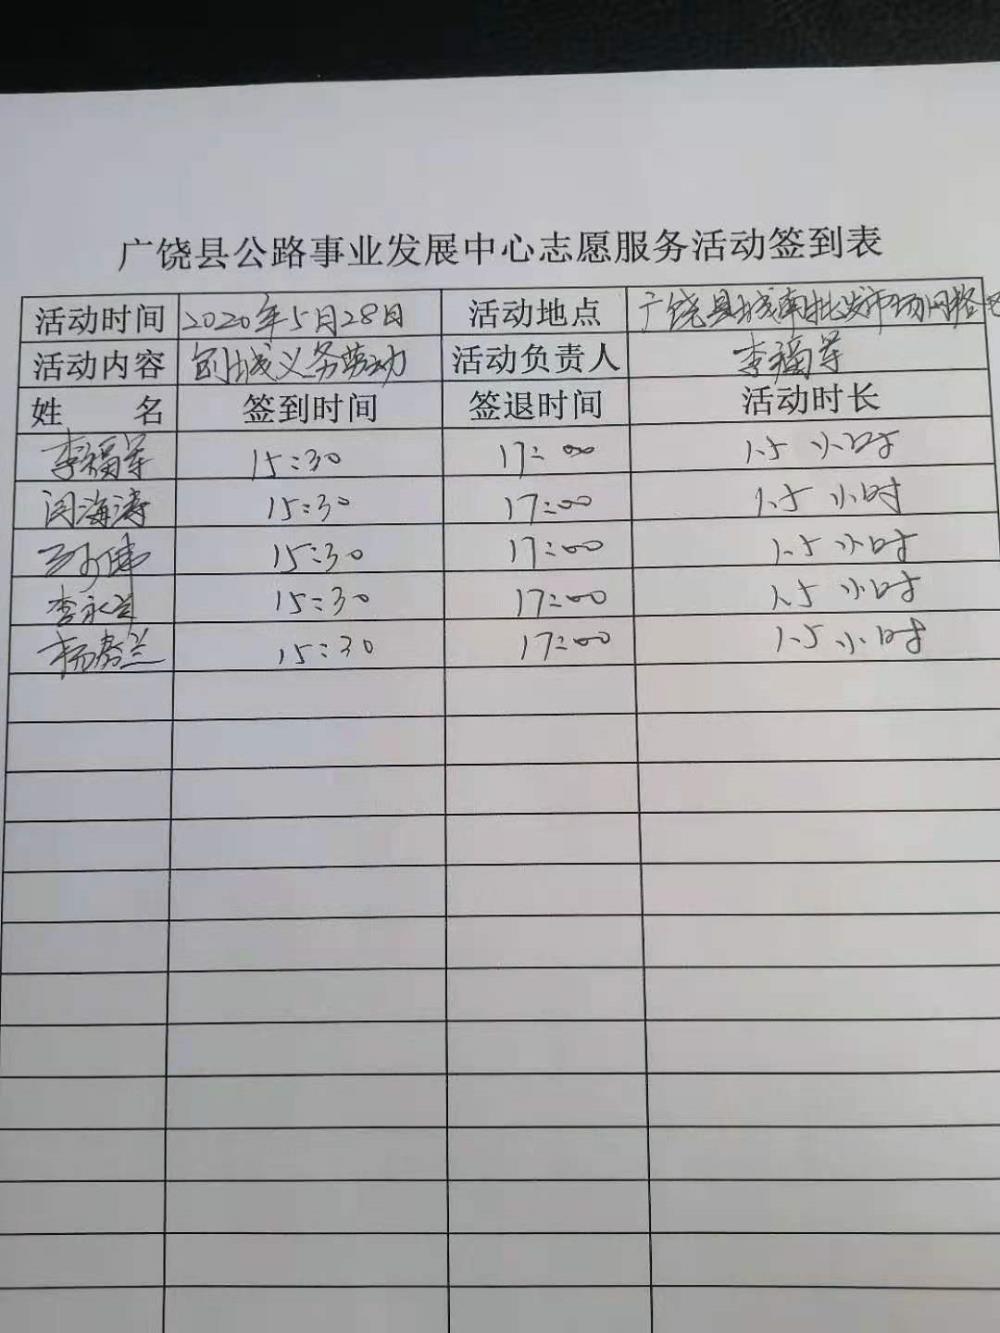 广饶县公路事业发展中心志愿服务活动签到表
活动时间 2020年5月28日 活动地点 广饶县城南批发市场网格
活动内容 创城义务劳动 活动负责人 李福军
姓 名 签到时间 签退时间 活动时长
李福军 15:30 17:00 1.5小时
闫海涛 15:30 17:00 1.5小时
15:30 17:00 1.5小时
李永兰 15:30 17:00 1.5小时
杨春兰 15:30 17:00 1.5小时